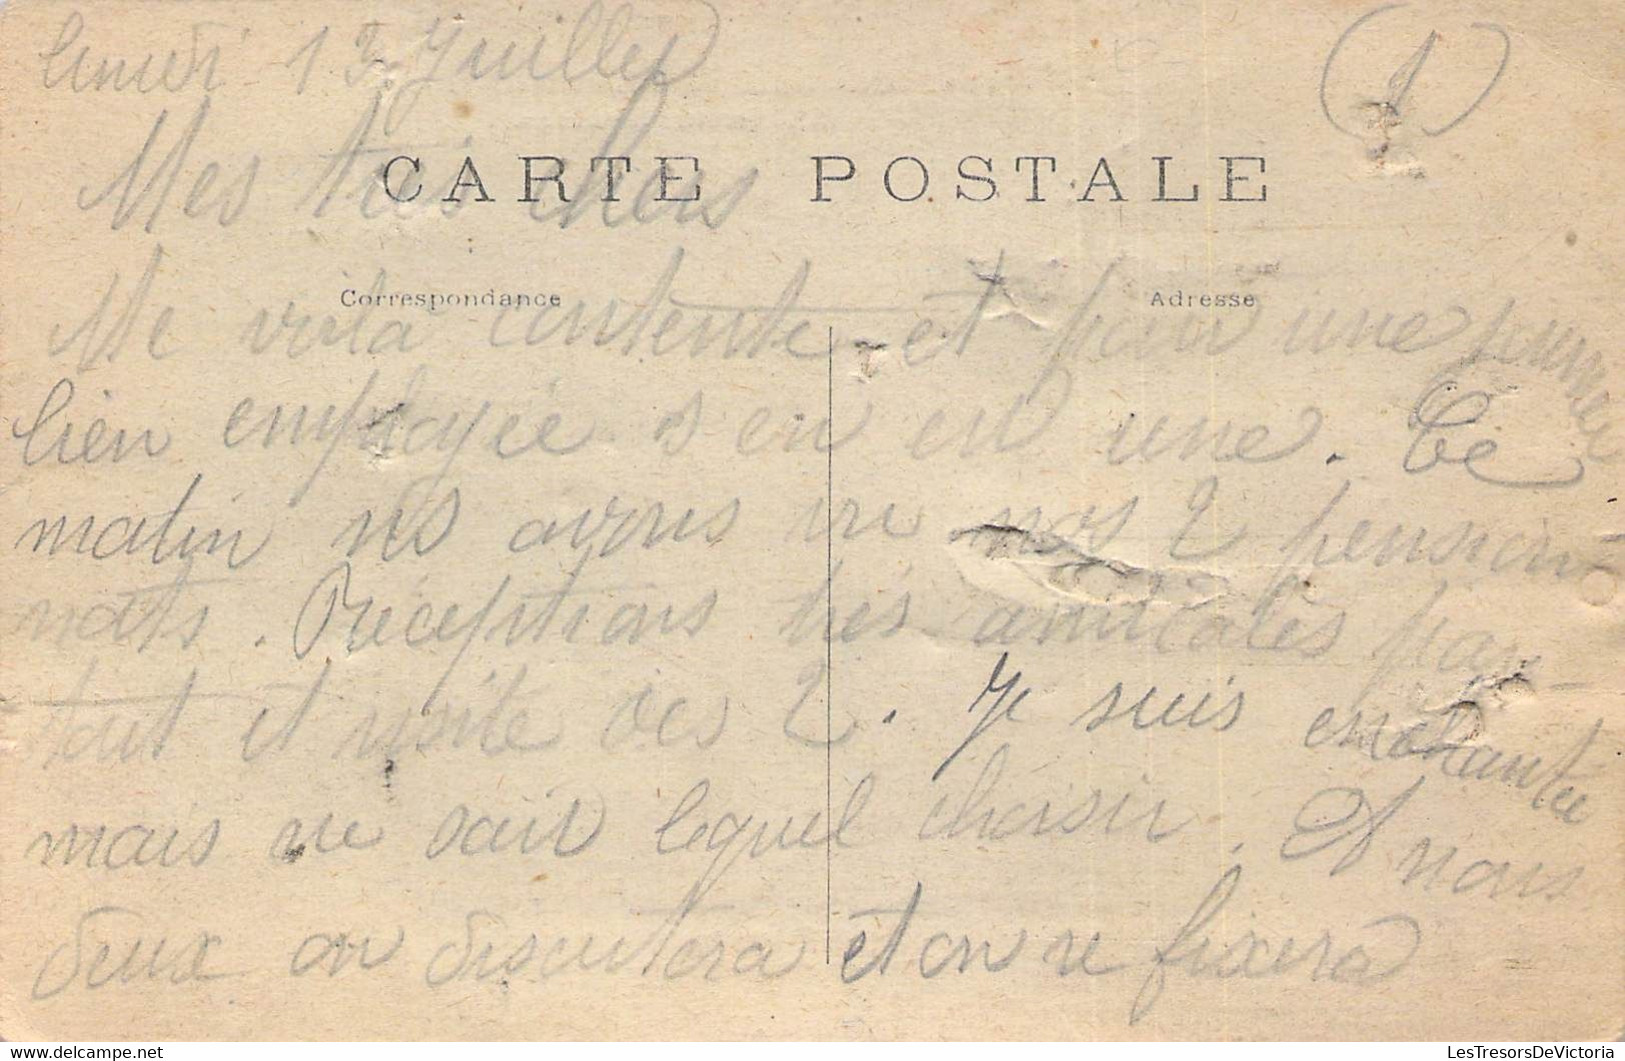 lundi 13 Juillet
(1)
Mes très chers
CARTE POSTALE
Correspondance
Adresse
Me voilà contente et pour une journée
bien employée s'en est une. Ce
matin ns avons vu nos 2 pension-
nats. Réceptions très amicales par-
tout et visite des 2. Je suis enchantée
mais ne sais lequel choisir. A nous
deux on discutera et on se fixera
LesTresorsDeVictoria